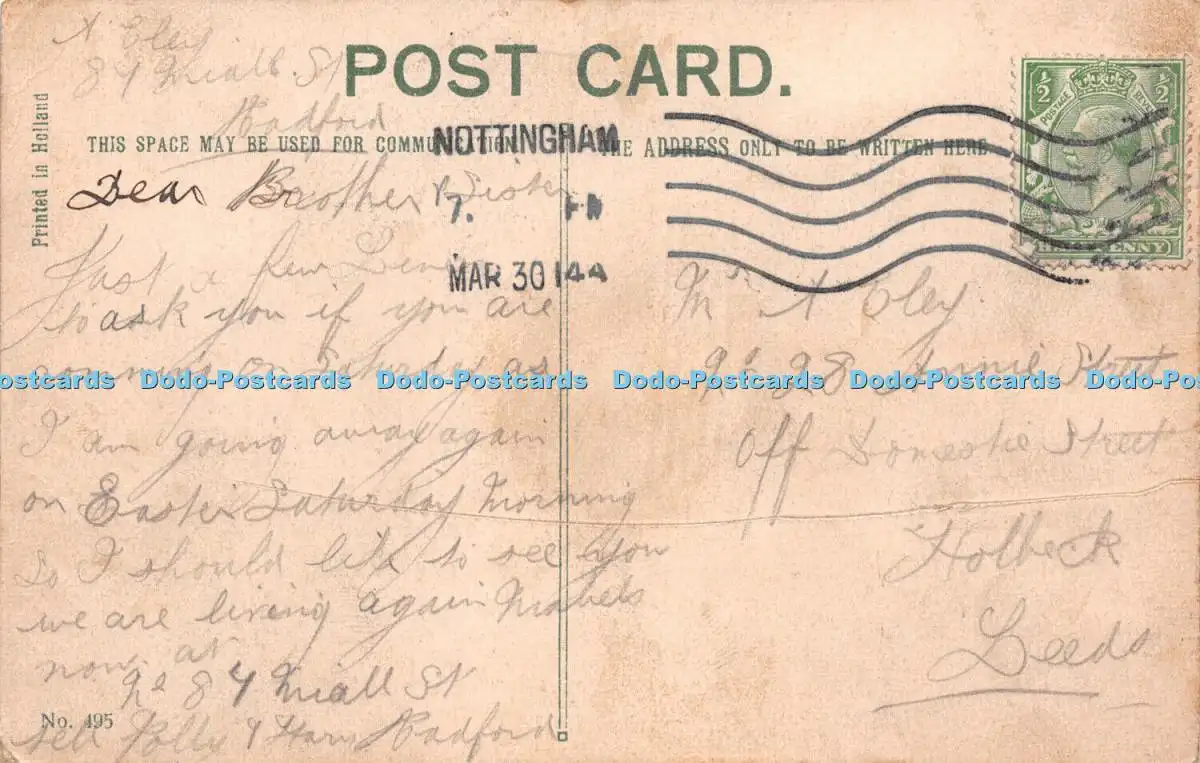 A Eley
84 Niall St
Radford
POST CARD.
Printed in Holland
THIS SPACE MAY BE USED FOR COMMUNICATION
THE ADDRESS ONLY TO BE WRITTEN HERE
NOTTINGHAM
7. PM
MAR 30 14
½ ½
POSTAGE REVENUE
HALF PENNY
Dear Brother & Sister
Just a few Lines
to ask you if you are
coming on Saturday as
I am going away again
on Easter Saturday Morning
So I should like to see you
we are living again Mabels
now at
No 84 Niall St
tell Polly & Harry Radford
No. 495
Mr A Eley
No 28 Annie Street
Off Domestic Street
Holbeck
Leeds
Dodo-Postcards Dodo-Postcards Dodo-Postcards Dodo-Postcards Dodo-Postcards Dodo-Postcards